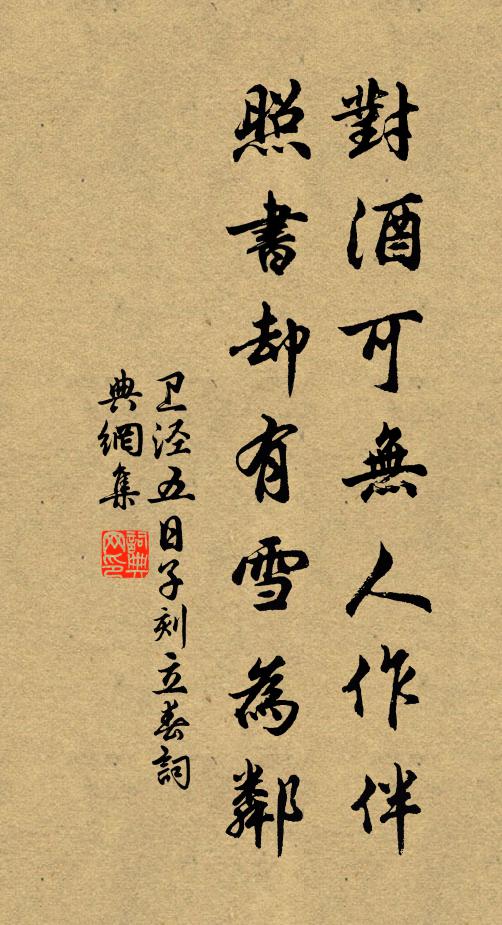 對酒可無人作伴
照書却有雪為鄰
卫泾五日子刻立春詞
典網集
詞典网印